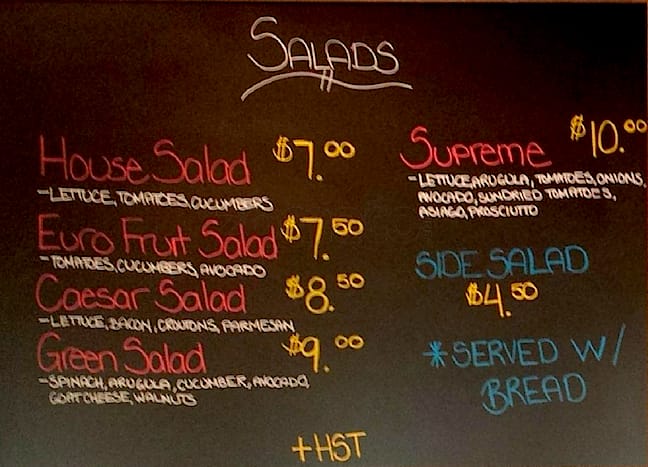 SALADS
House Salad $7.00
-LETTUCE, TOMATOES, CUCUMBERS
Euro Fruit Salad $7.50
-TOMATOES, CUCUMBERS, AVOCADO
Caesar Salad $8.50
-LETTUCE, BACON, CROUTONS, PARMESAN
Green Salad $9.00
-SPINACH, ARUGULA, CUCUMBER, AVOCADO,
GOAT CHEESE, WALNUTS
Supreme $10.00
-LETTUCE, ARUGULA, TOMATOES, ONIONS,
AVOCADO, SUNDRIED TOMATOES,
ASIAGO, PROSCIUTTO
SIDE SALAD
$4.50
*SERVED W/
BREAD
+HST